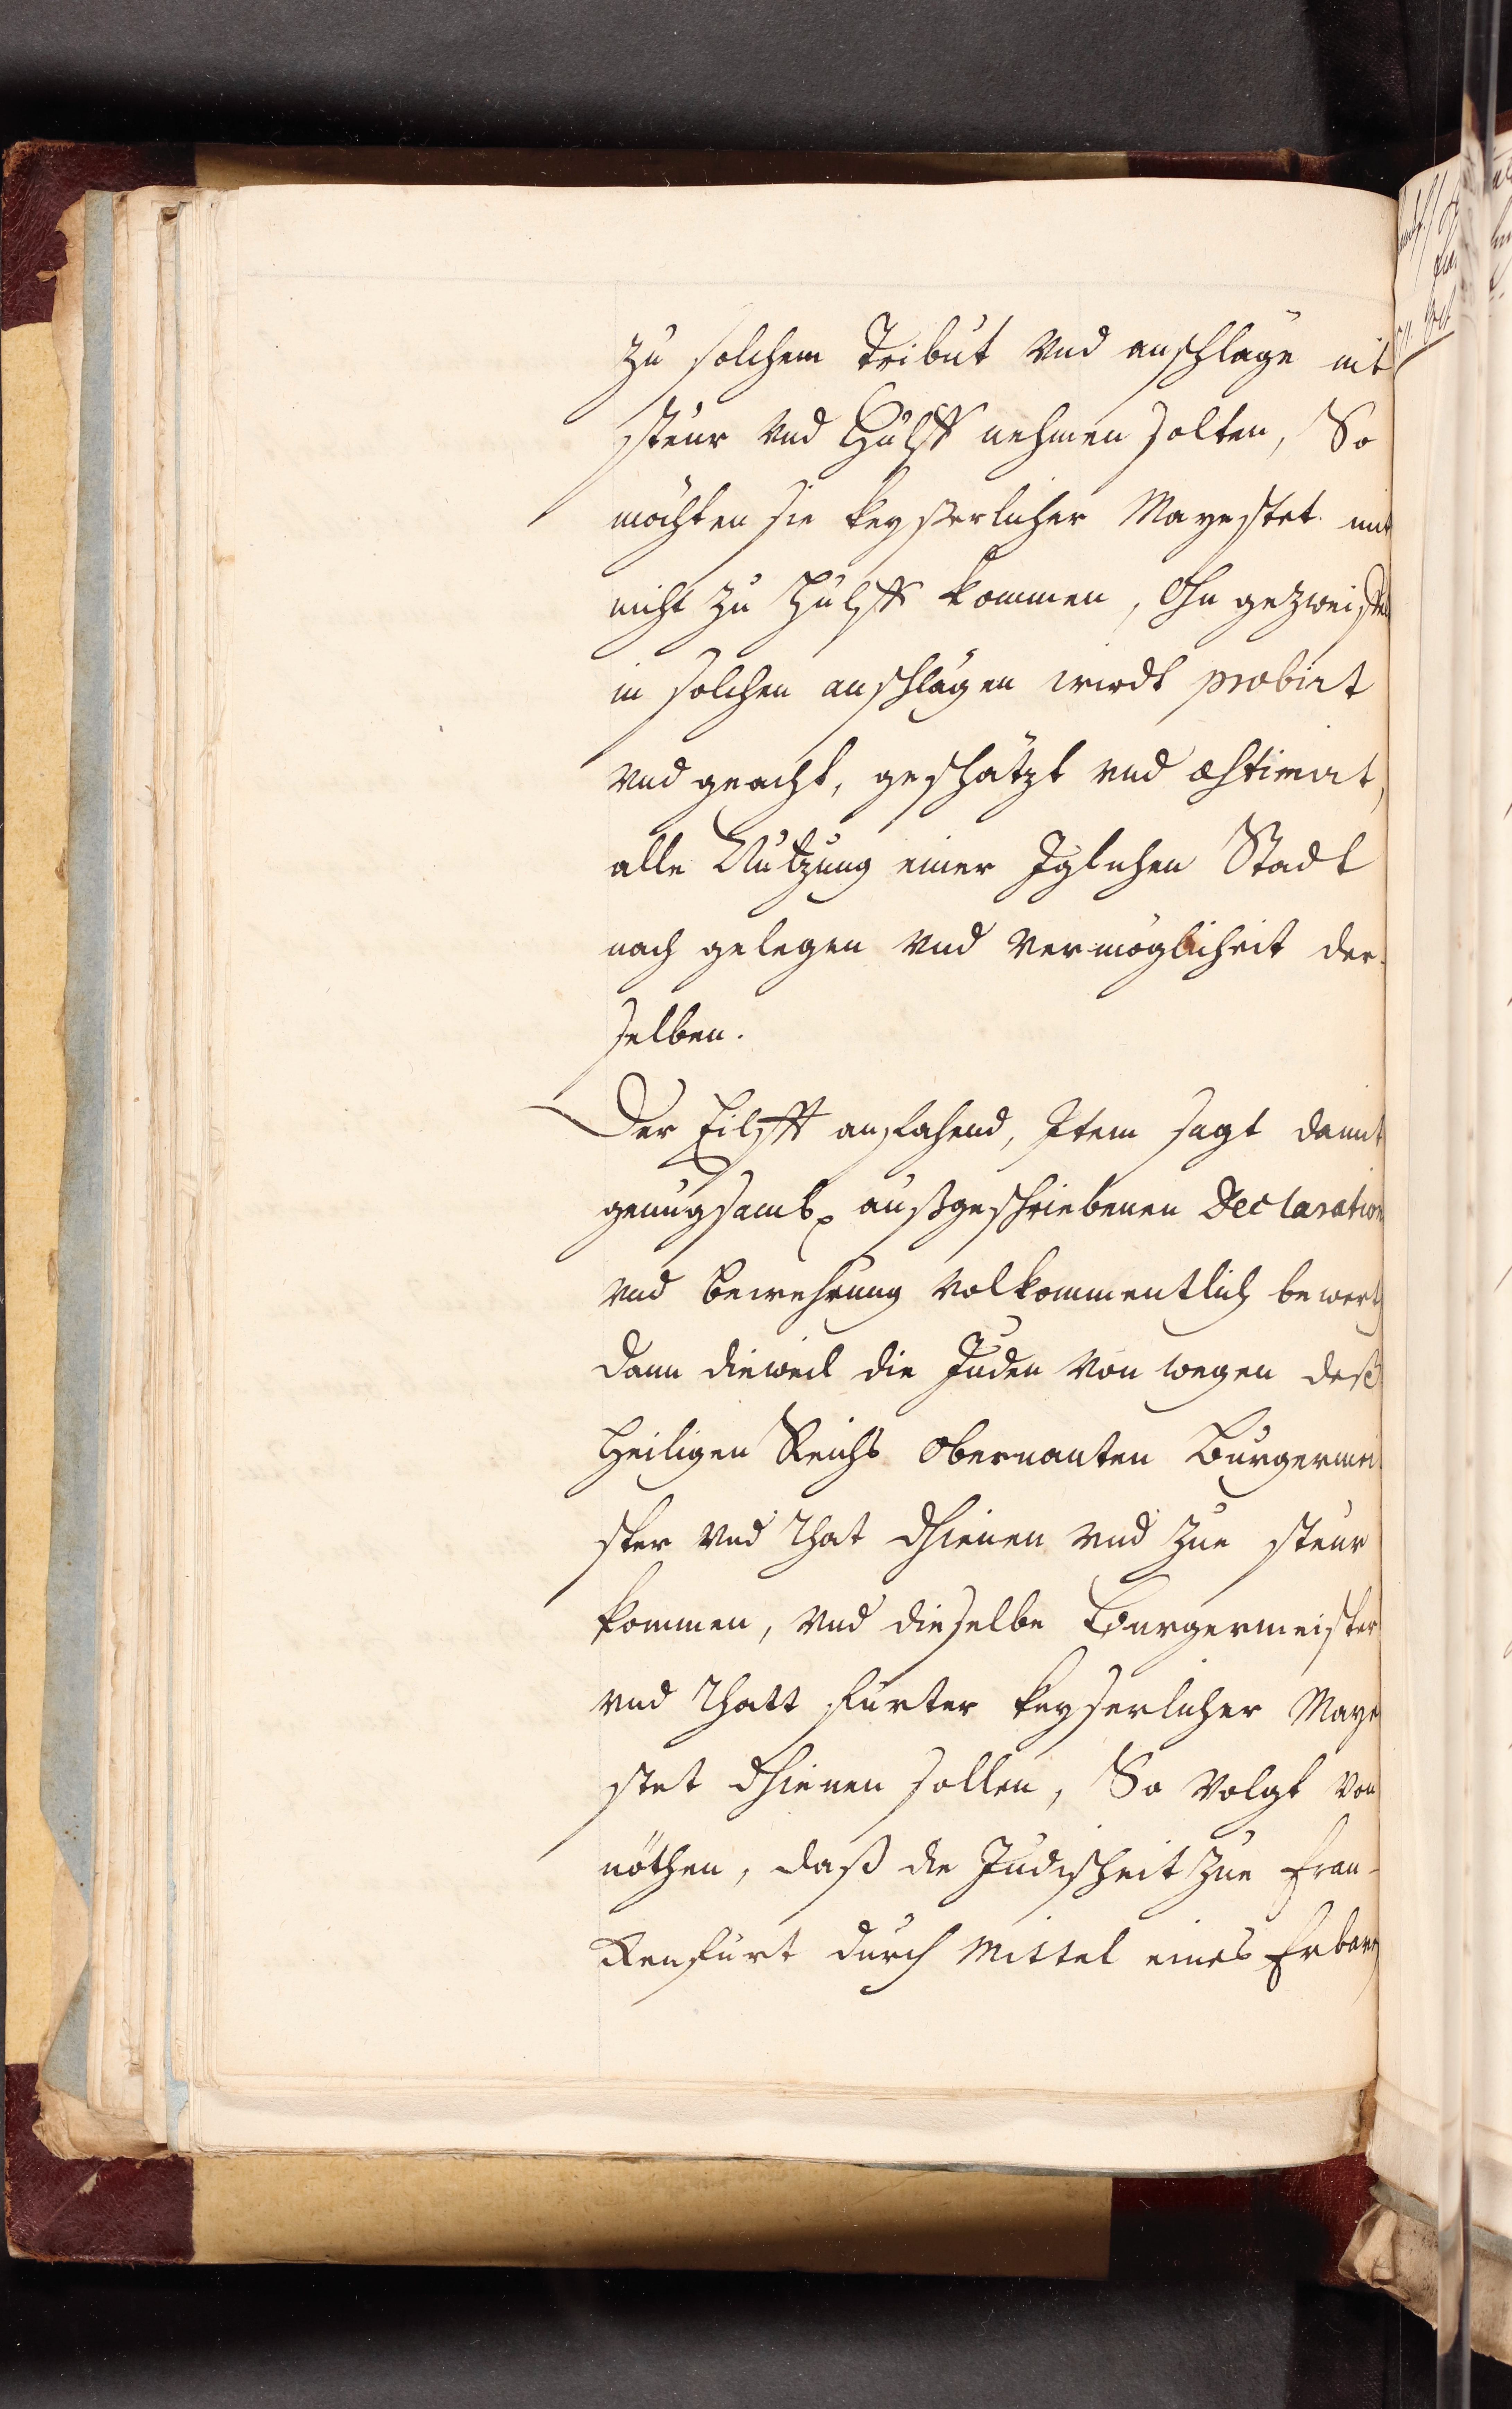 zu solchem Tribut vnd anschläge nit
steur vnd Hülff nehmen solten, So
möchten sie keyserlicher Mayestet mit
nicht zu Hülff kommen, Ohn gezweiffelt
in solchen anschlägen wirdt probirt
vnd geacht, geschätzt vnd æstimirt,
alle Nutzung einer Iglichen Stadt
nach gelegen vnd vermöglicheit der-
selben.
Der Eilfft anfahend, Item sagt damit
genugsamb außgeschriebenen Declaration
vnd bewehrung volkommentlich bewert
dann dieweil die Juden von wegen deß
Heiligen Reichs obernanten Burgermei-
ster vnd Rhat dhienen vnd zue steur
kommen, vnd dieselbe Burgermeister
vnd Rhatt furter keyserlicher Maye
stet dhienen sollen, So volgt von
nöthen, daß die Judischeit zue Fran-
kenfurt durch Mittel eines Erbarn